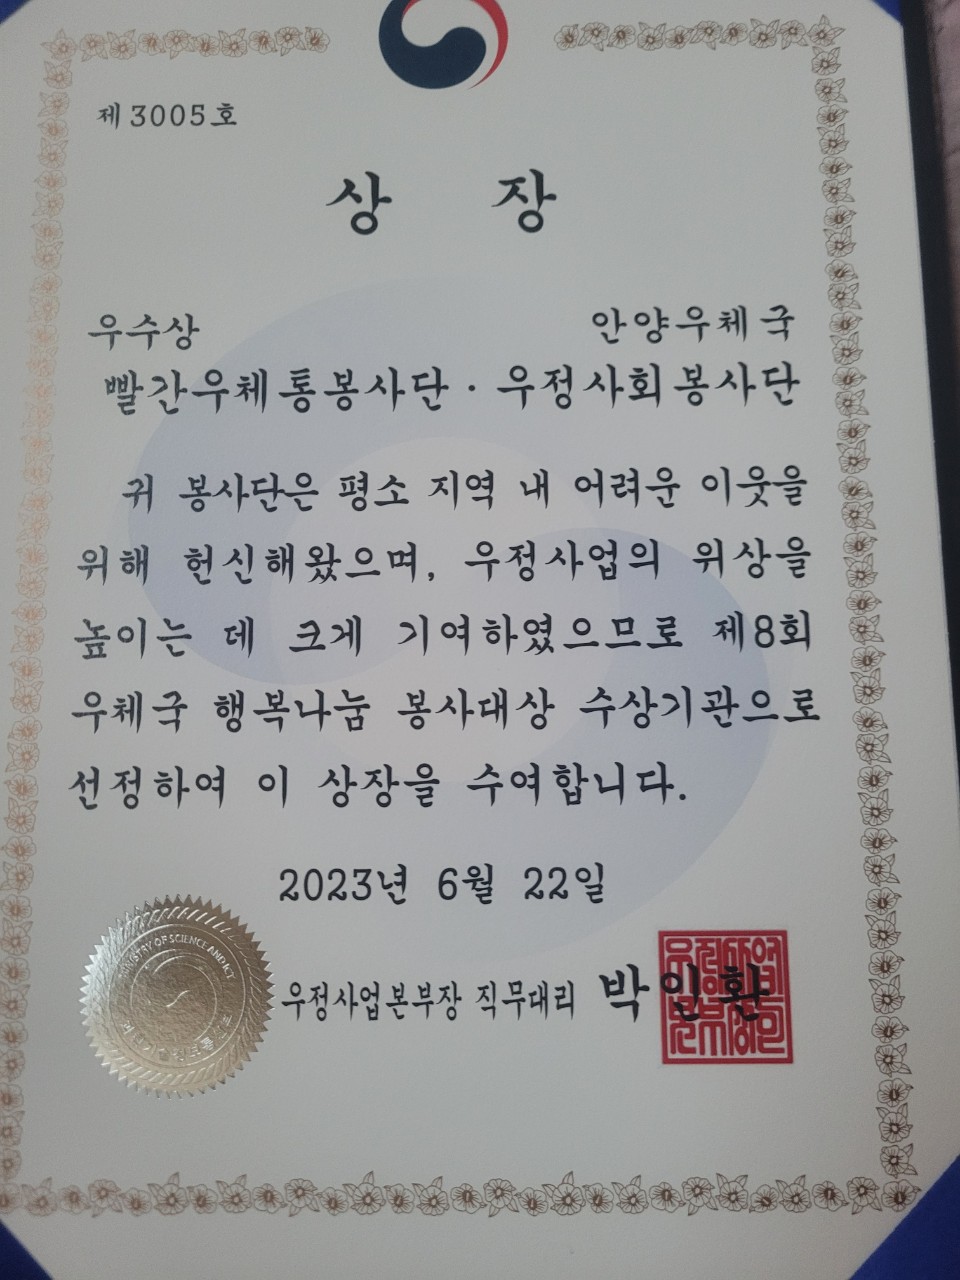 제3005호
상 장
우수상 안양우체국
빨간우체통봉사단·우정사회봉사단
귀 봉사단은 평소 지역 내 어려운 이웃을
위해 헌신해왔으며, 우정사업의 위상을
높이는 데 크게 기여하였으므로 제8회
우체국 행복나눔 봉사대상 수상기관으로
선정하여 이 상장을 수여합니다.
2023년 6월 22일
MINISTRY OF SCIENCE AND ICT
우정사업본부장 직무대리 박인환